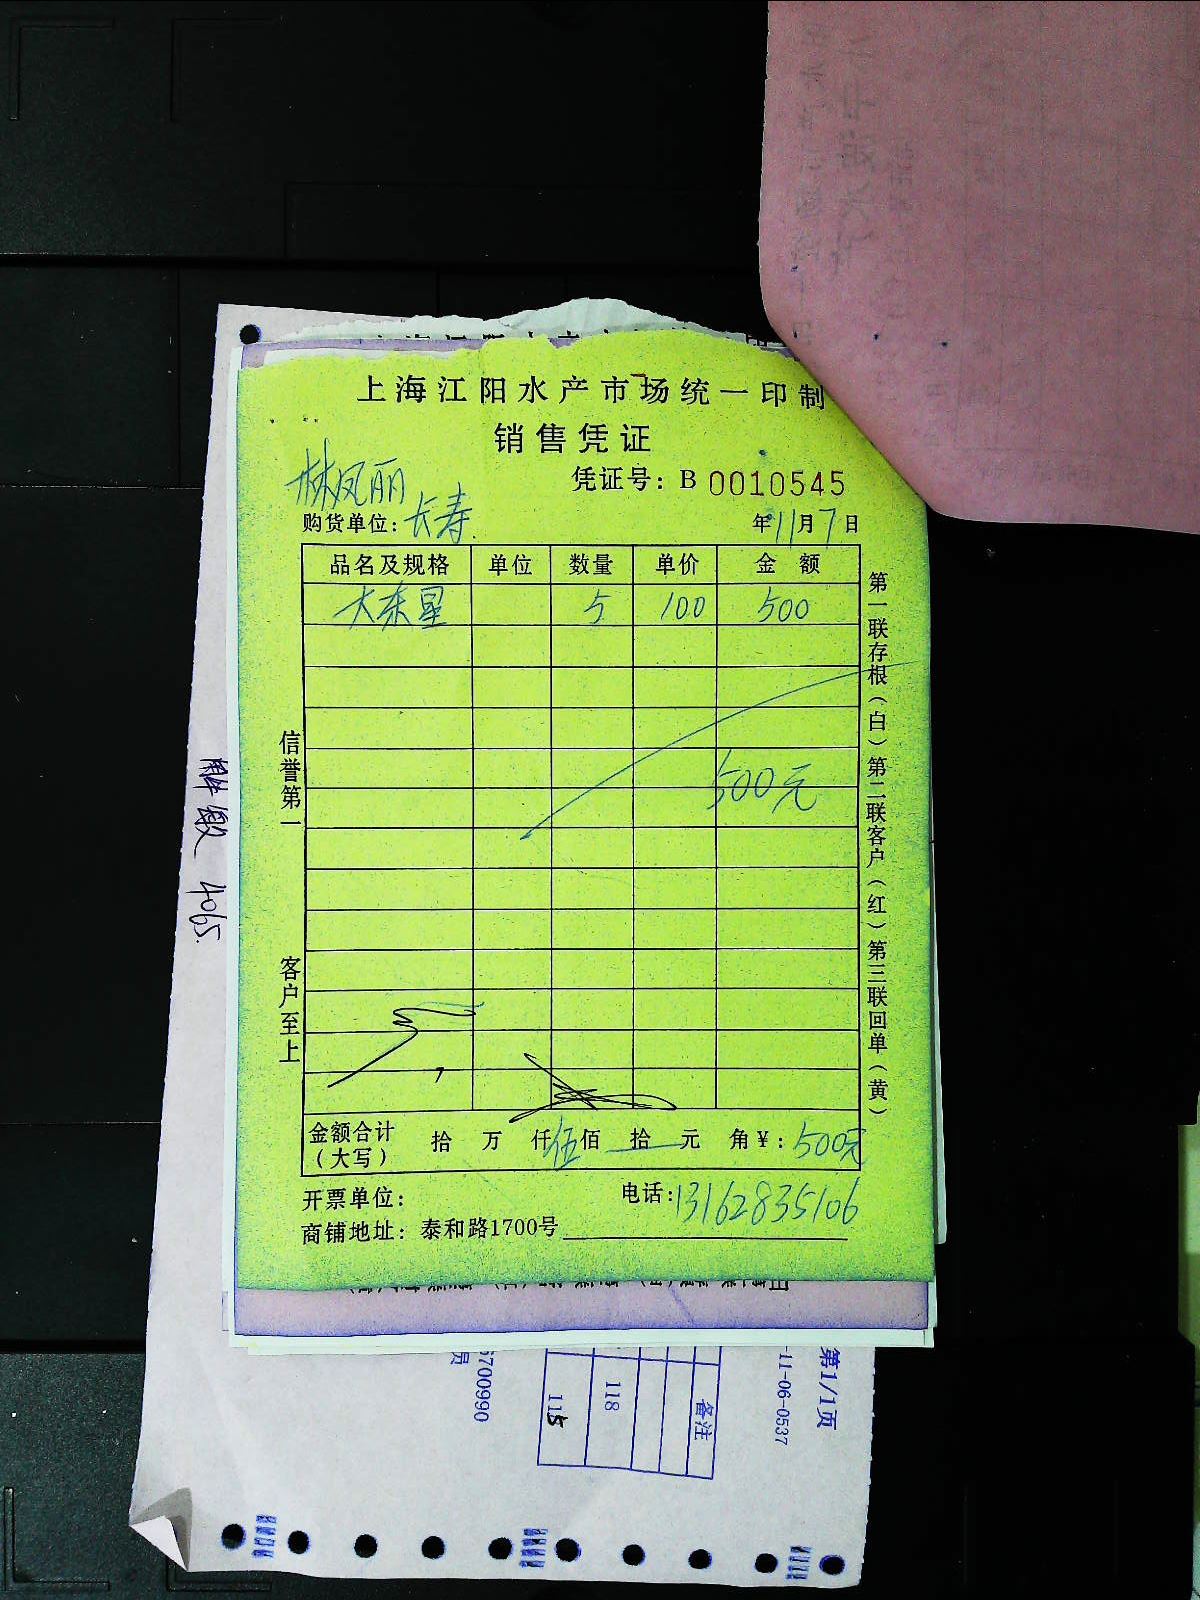 上海江阳水产市场统一印制
销售凭证
林凤丽
凭证号：B 0010545
购货单位：长寿
年11月7日
品名及规格 单位 数量 单价 金额
大东星 5 100 500
500元
信誉第一
客户至上
第一联存根（白）第二联客户（红）第三联回单（黄）
金额合计（大写） 拾 万 仟伍佰 拾 元 角￥：500元
开票单位：
电话：13162835106
商铺地址：泰和路1700号
4065
第1/1页
-11-06-0537
备注
118
115
6700990
员